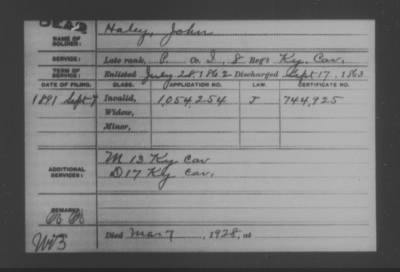 NAME OF SOLDIER: Haley, John
SERVICE: Late rank, P. Co. I, 8 Reg't Ky. Cav.
TERM OF SERVICE: Enlisted July 28, 1862 Discharged Sept 17, 1863
DATE OF FILING. CLASS. APPLICATION NO. LAW. CERTIFICATE NO.
1891 Sept 7 Invalid, 1,054,254 J 744,925
Widow,
Minor,
ADDITIONAL SERVICES: M 13 Ky Cav
D 17 Ky Cav.
REMARKS:
Died Mar 7, 1928, at